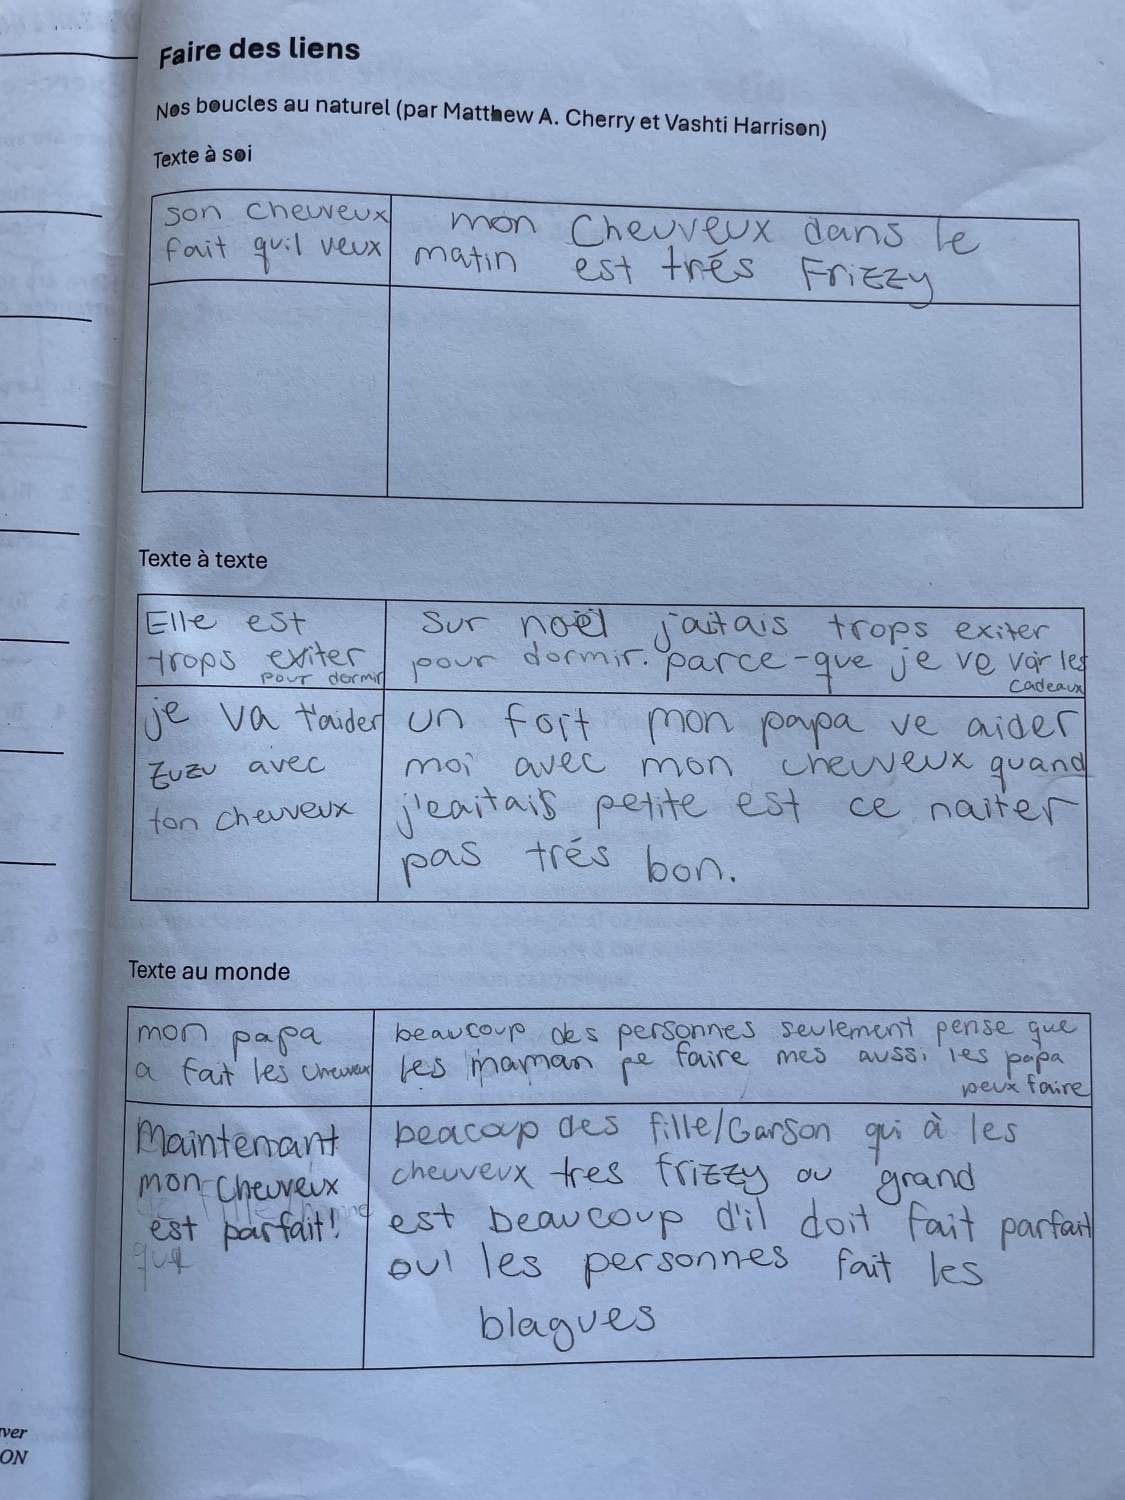 Faire des liens
Nos boucles au naturel (par Matthew A. Cherry et Vashti Harrison)
Texte à soi
son cheuveux
fait qu'il veux
mon Cheuveux dans le
matin est trés Frizzy
Texte à texte
Elle est
trops exiter
pour dormir
Sur noël j'aitais trops exiter
pour dormir. parce-que je ve voir les
cadeaux
je va t'aider
Zuzu avec
ton cheuveux
un fort mon papa ve aider
moi avec mon cheuveux quand
j'eaitais petite est ce naiter
pas trés bon.
Texte au monde
mon papa
a fait les cheuveux
beaucoup des personnes seulement pense que
les maman pe faire mes aussi les papa
peux faire
Maintenant
mon cheuveux
est parfait!
que
beacoup des fille/Garson qui à les
cheuveux tres frizzy ou grand
est beaucoup d'il doit fait parfait
oui les personnes fait les
blagues
ver
ON